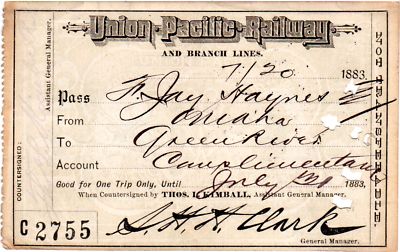 Union Pacific Railway
AND BRANCH LINES.
7/20 1883.
Pass F. Jay Haynes
From Omaha
To Green River
Account Complimentary
Good for One Trip Only, Until July 31 1883,
When Countersigned by THOS. L. KIMBALL, Assistant General Manager.
C 2755
S. H. H. Clark
General Manager.
COUNTERSIGNED:
Assistant General Manager.
NOT TRANSFERABLE